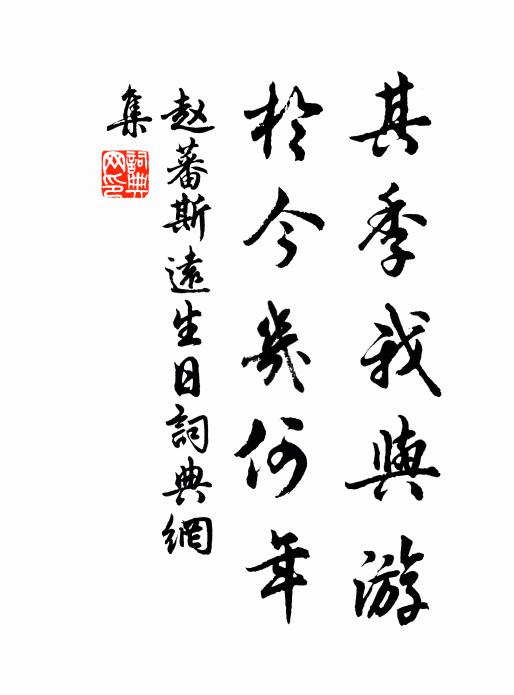 其季我與游
於今幾何年
赵蕃斯遠生日詞典網
集
詞典
网印